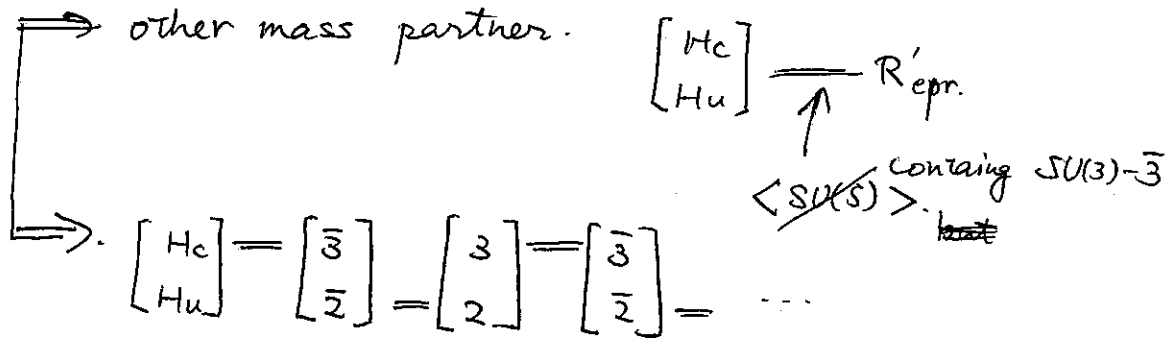 ⟹ other mass partner.
[Hc Hu] — R'epr.
<SU(5)>. containg SU(3)-3̄
⟹. [Hc Hu] = [3̄ 2̄] = [3 2] = [3̄ 2̄] = ----